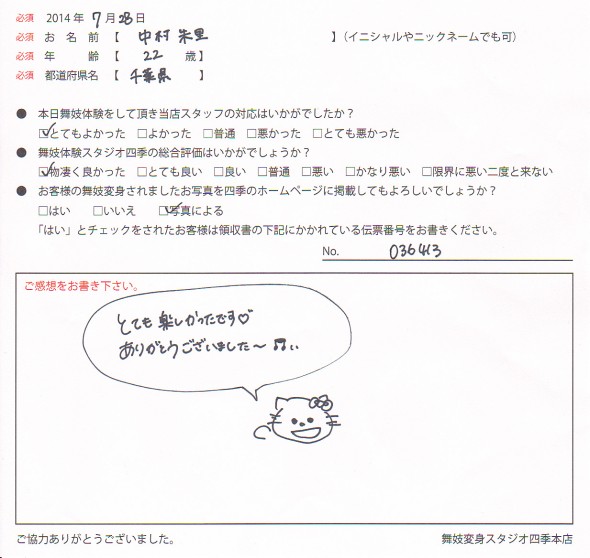 必須 2014年 7月 28日
必須 お 名 前 【 中村 朱里 】(イニシャルやニックネームでも可)
必須 年 齢 【 22 歳】
必須 都道府県名 【 千葉県 】
● 本日舞妓体験をして頂き当店スタッフの対応はいかがでしたか？
☑とてもよかった □よかった □普通 □悪かった □とても悪かった
● 舞妓体験スタジオ四季の総合評価はいかがでしょうか？
☑物凄く良かった □とても良い □良い □普通 □悪い □かなり悪い □限界に悪い二度と来ない
● お客様の舞妓変身されましたお写真を四季のホームページに掲載してもよろしいでしょうか？
□はい □いいえ ☑写真による
「はい」とチェックをされたお客様は領収書の下記にかかれている伝票番号をお書きください。
No. 036413
ご感想をお書き下さい。
とても楽しかったです♡
ありがとうございました〜 ♬
ご協力ありがとうございました。 舞妓変身スタジオ四季本店